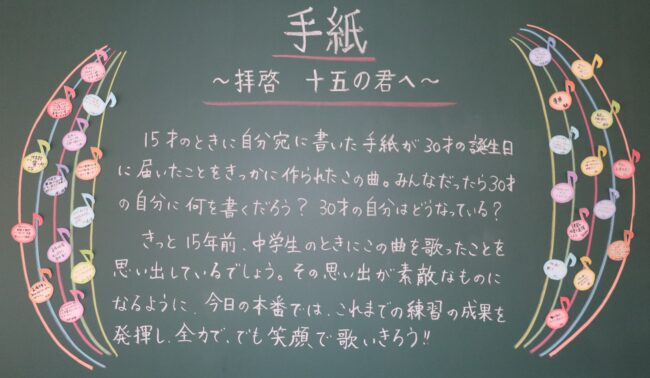 手紙
～拝啓 十五の君へ～
15才のときに自分宛に書いた手紙が30才の誕生日
に届いたことをきっかけに作られたこの曲。みんなだったら30才
の自分に何を書くだろう？ 30才の自分はどうなっている？
きっと15年前、中学生のときにこの曲を歌ったことを
思い出しているでしょう。その思い出が素敵なものに
なるように、今日の本番では、これまでの練習の成果を
発揮し、全力で、でも笑顔で歌いきろう!!